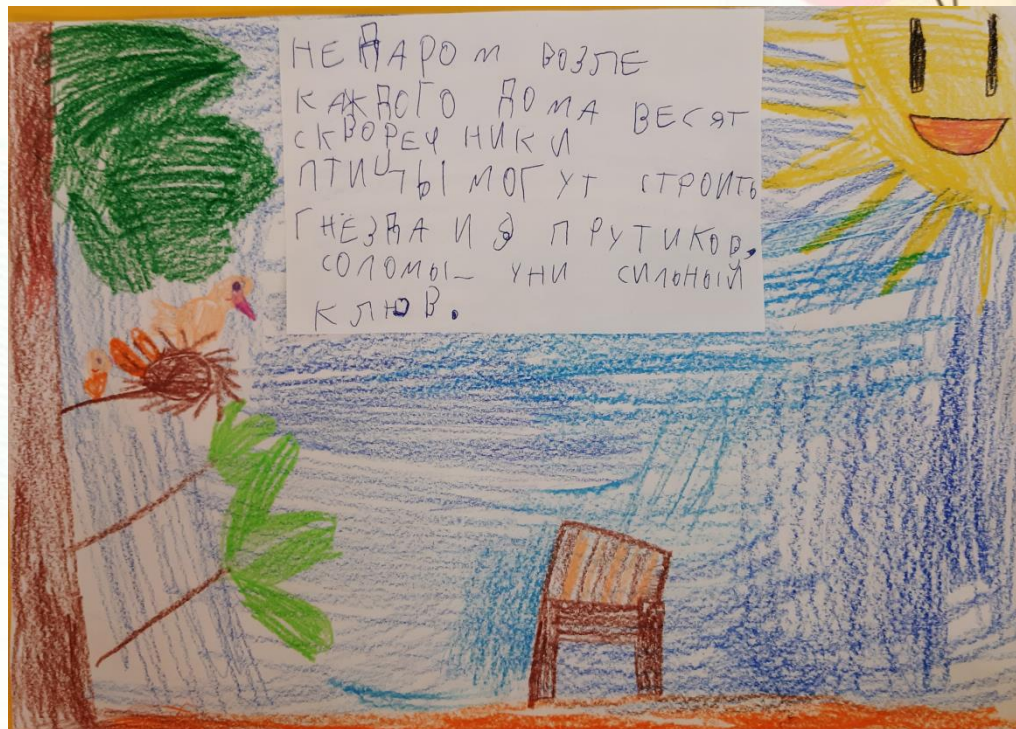 НЕДАРОМ ВОЗЛЕ
КАЖДОГО ДОМА ВЕСЯТ
СКВОРЕЧНИКИ
ПТИЦЫ МОГУТ СТРОИТЬ
ГНЁЗДА ИЗ ПРУТИКОВ,
СОЛОМЫ_ УНИ СИЛЬНЫЙ
КЛЮВ.